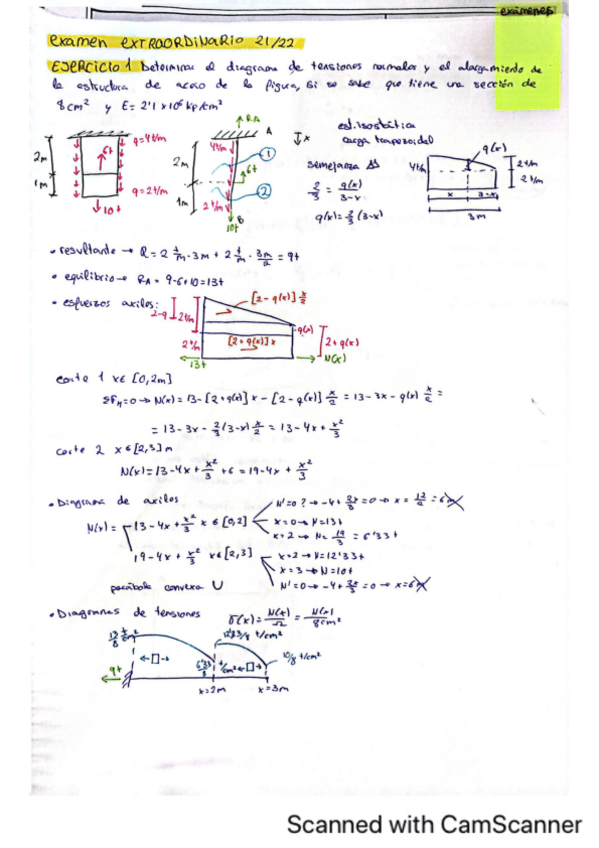 exámenes
examen EXTRAORDINARIO 21/22
EJERCICIO 1 Determinar el diagrama de tensiones normales y el alargamiento de
la estructura de acero de la figura, si se sabe que tiene una sección de
8cm² y E= 2'1 x10⁶ kp/cm²
q=4t/m
2m
6t
1m
q=2t/m
10t
RA
A
4t/m
1
2m
6t
2
1m
2t/m
B
10t
x
est. isostática
carga trapezoidal
semejanza Δs
2/3 = q(x)/3-x
q(x)=2/3 (3-x)
q(x)
4t/m
2t/m
2t/m
x
3-x
3m
• resultante → Q = 2 t/m · 3m + 2 t/m · 3m/2 = 9t
• equilibrio → RA = 9-6+10=13t
• esfuerzos axiles:
2-q
2t/m
[2-q(x)] x/2
q(x)
2t/m
[2+q(x)] x
2+q(x)
13t
N(x)
corte 1 x∈ [0,2m]
ΣFH=0 → N(x) = 13-[2+q(x)] x - [2-q(x)] x/2 = 13-3x-q(x) x/2 =
= 13-3x- 2/3(3-x) x/2 = 13-4x+ x²/3
corte 2 x∈[2,3]m
N(x)=13-4x+ x²/3 +6 = 19-4x + x²/3
• Diagrama de axiles
N(x) = 13-4x+ x²/3 x∈[0,2]
N'=0? → -4+ 2x/3 =0 → x= 12/2 = 6m
x=0 → N=13t
x=2 → N= 19/3 = 6'33t
19-4x + x²/3 x∈[2,3]
x=2 → N=12'33t
x=3 → N=10t
N'=0 → -4+ 2x/3 =0 → x=6m
parábola convexa U
• Diagramas de tensiones
σ(x)= N(x)/Ω = N(x)/8cm²
13/8 t/cm²
12'33/8 t/cm²
6'33/8 t/cm²
10/8 t/cm²
9t
x=2m
x=3m
Scanned with CamScanner